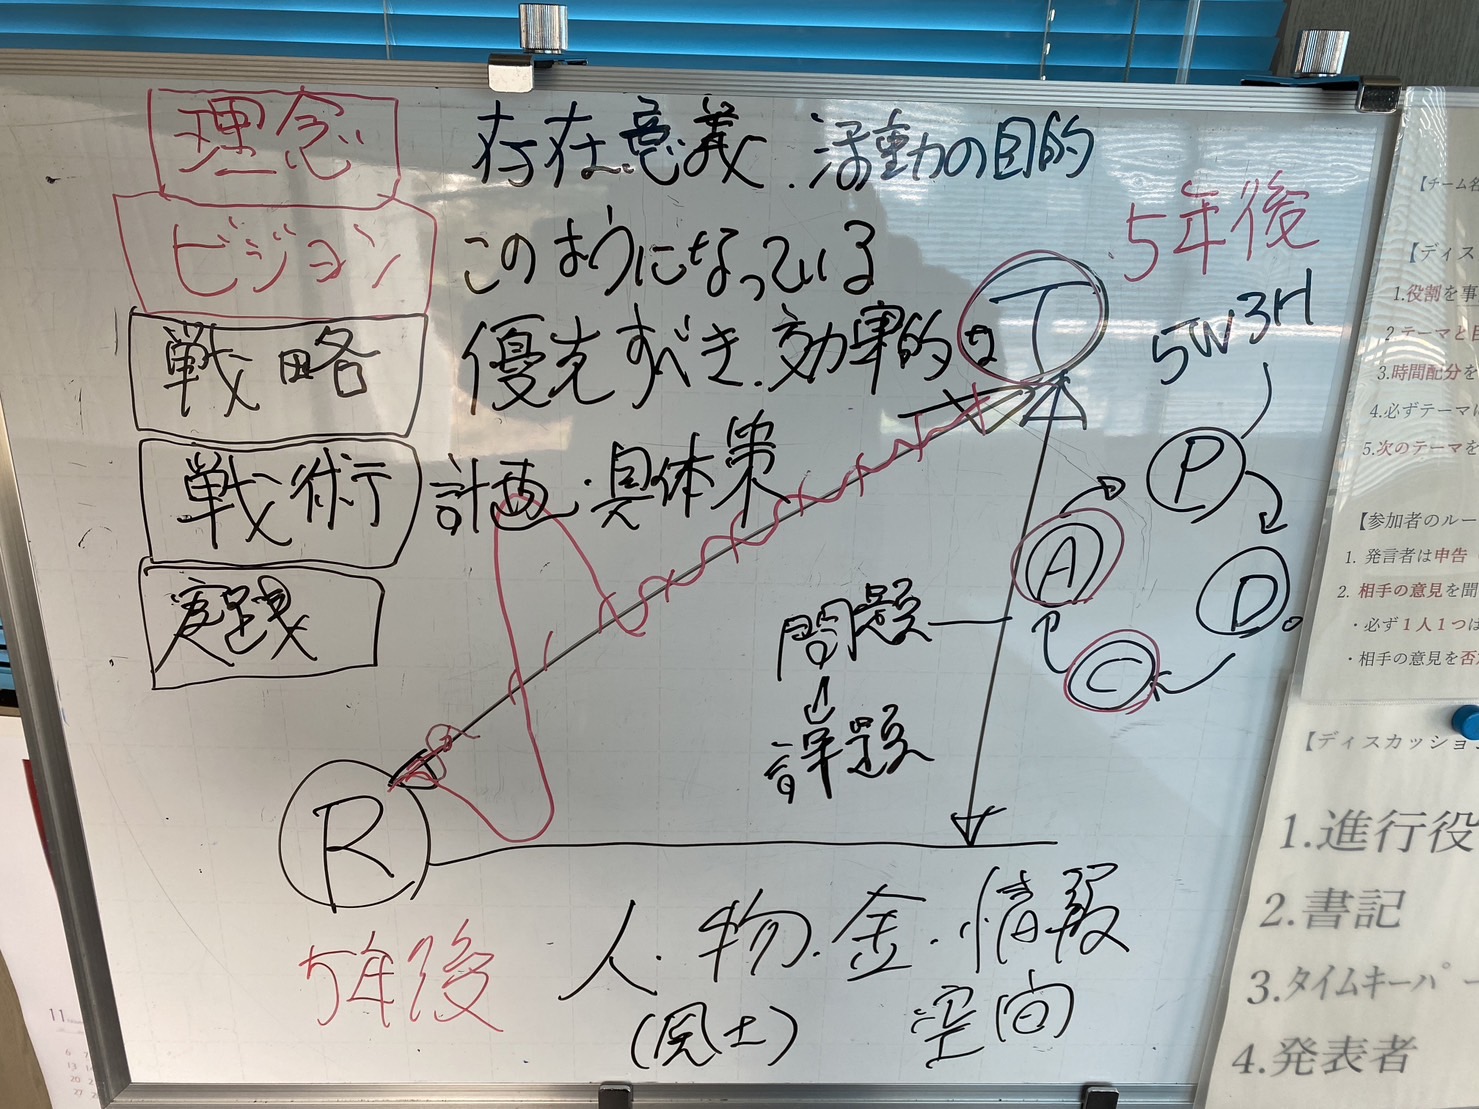 理念 存在意義．活動の目的
ビジョン このようになっている
5年後
戦略 優先すべき．効率的
T
5W3H
戦術 計画・具体策
P
A
D
C
実践
問題
課題
R
5年後
人・物・金・情報
(風土) 空間
【チーム名
【ディス
1.役割を事
2.テーマと
3.時間配分を
4.必ずテーマ
5.次のテーマを
【参加者のルー
1. 発言者は申告
2. 相手の意見を聞
・必ず１人１つは
・相手の意見を否
【ディスカッショ
1.進行役
2.書記
3.タイムキーパー
4.発表者
11
6 7
13
20
27